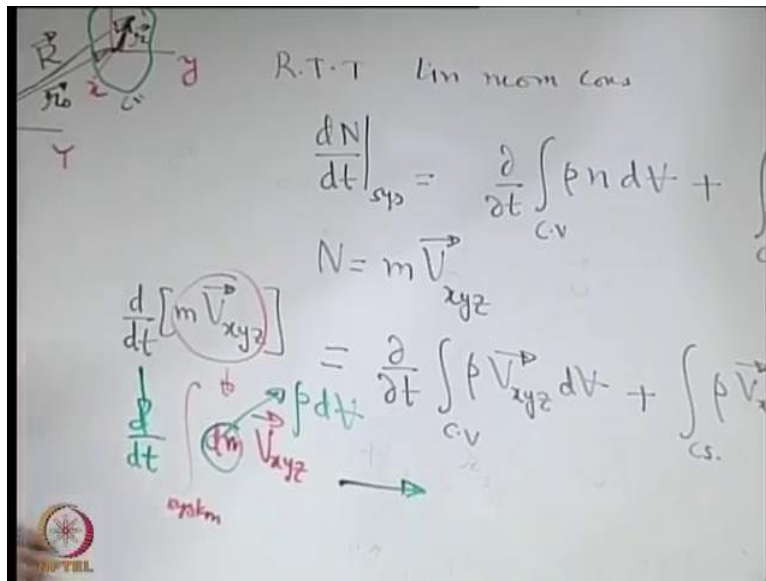 R
r₀ x C.V y
Y
R.T.T Lin mom cons
dN/dt|sys = ∂/∂t ∫C.V ρ n dV + ∫C
N = m V xyz
d/dt [m V xyz] = ∂/∂t ∫C.V ρ V xyz dV + ∫C.S. ρ V x
d/dt ∫system dm V xyz ρ dV
NPTEL